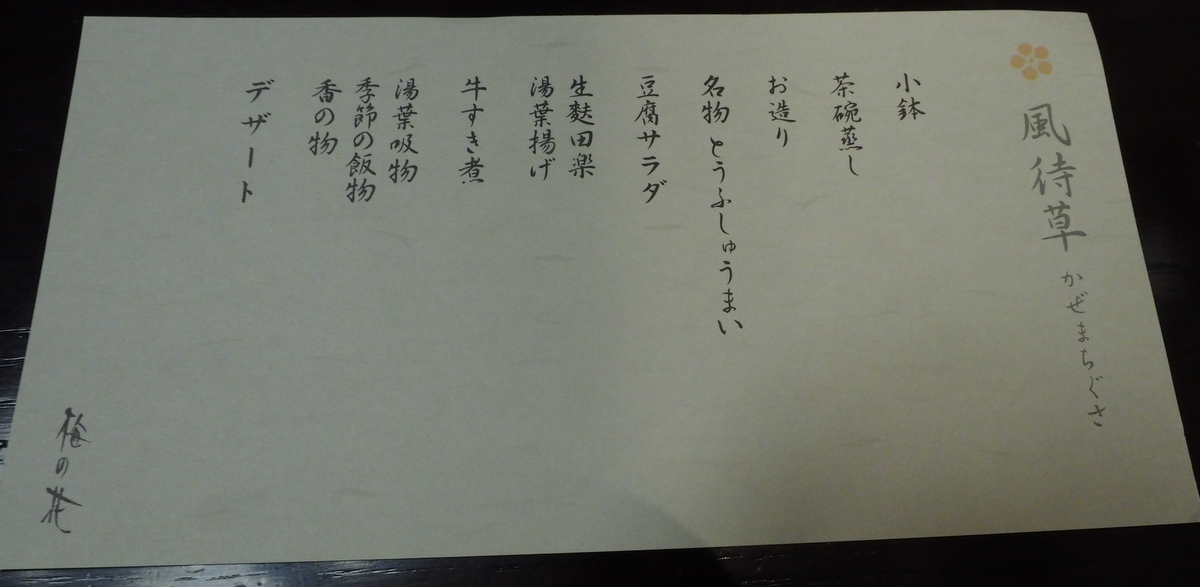 風待草 かぜまちぐさ
小鉢
茶碗蒸し
お造り
名物 とうふしゅうまい
豆腐サラダ
生麩田楽
湯葉揚げ
牛すき煮
湯葉吸物
季節の飯物
香の物
デザート
梅の花